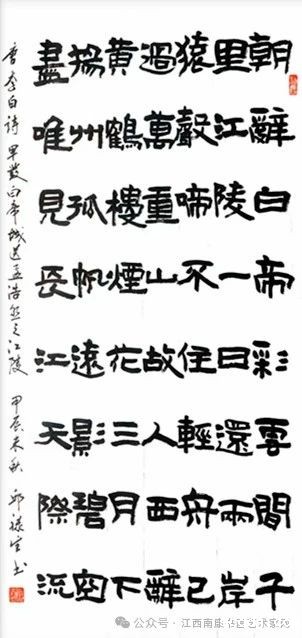 朝辭白帝彩雲間千
里江陵一日還兩岸
猿聲啼不住輕舟已
過萬重山故人西辭
黃鶴樓煙花三月下
揚州孤帆遠影碧空
盡唯見長江天際流
唐李白诗 早發白帝城送孟浩然之江陵 甲辰末秋 邱禄生书
公众号 · 江西南康